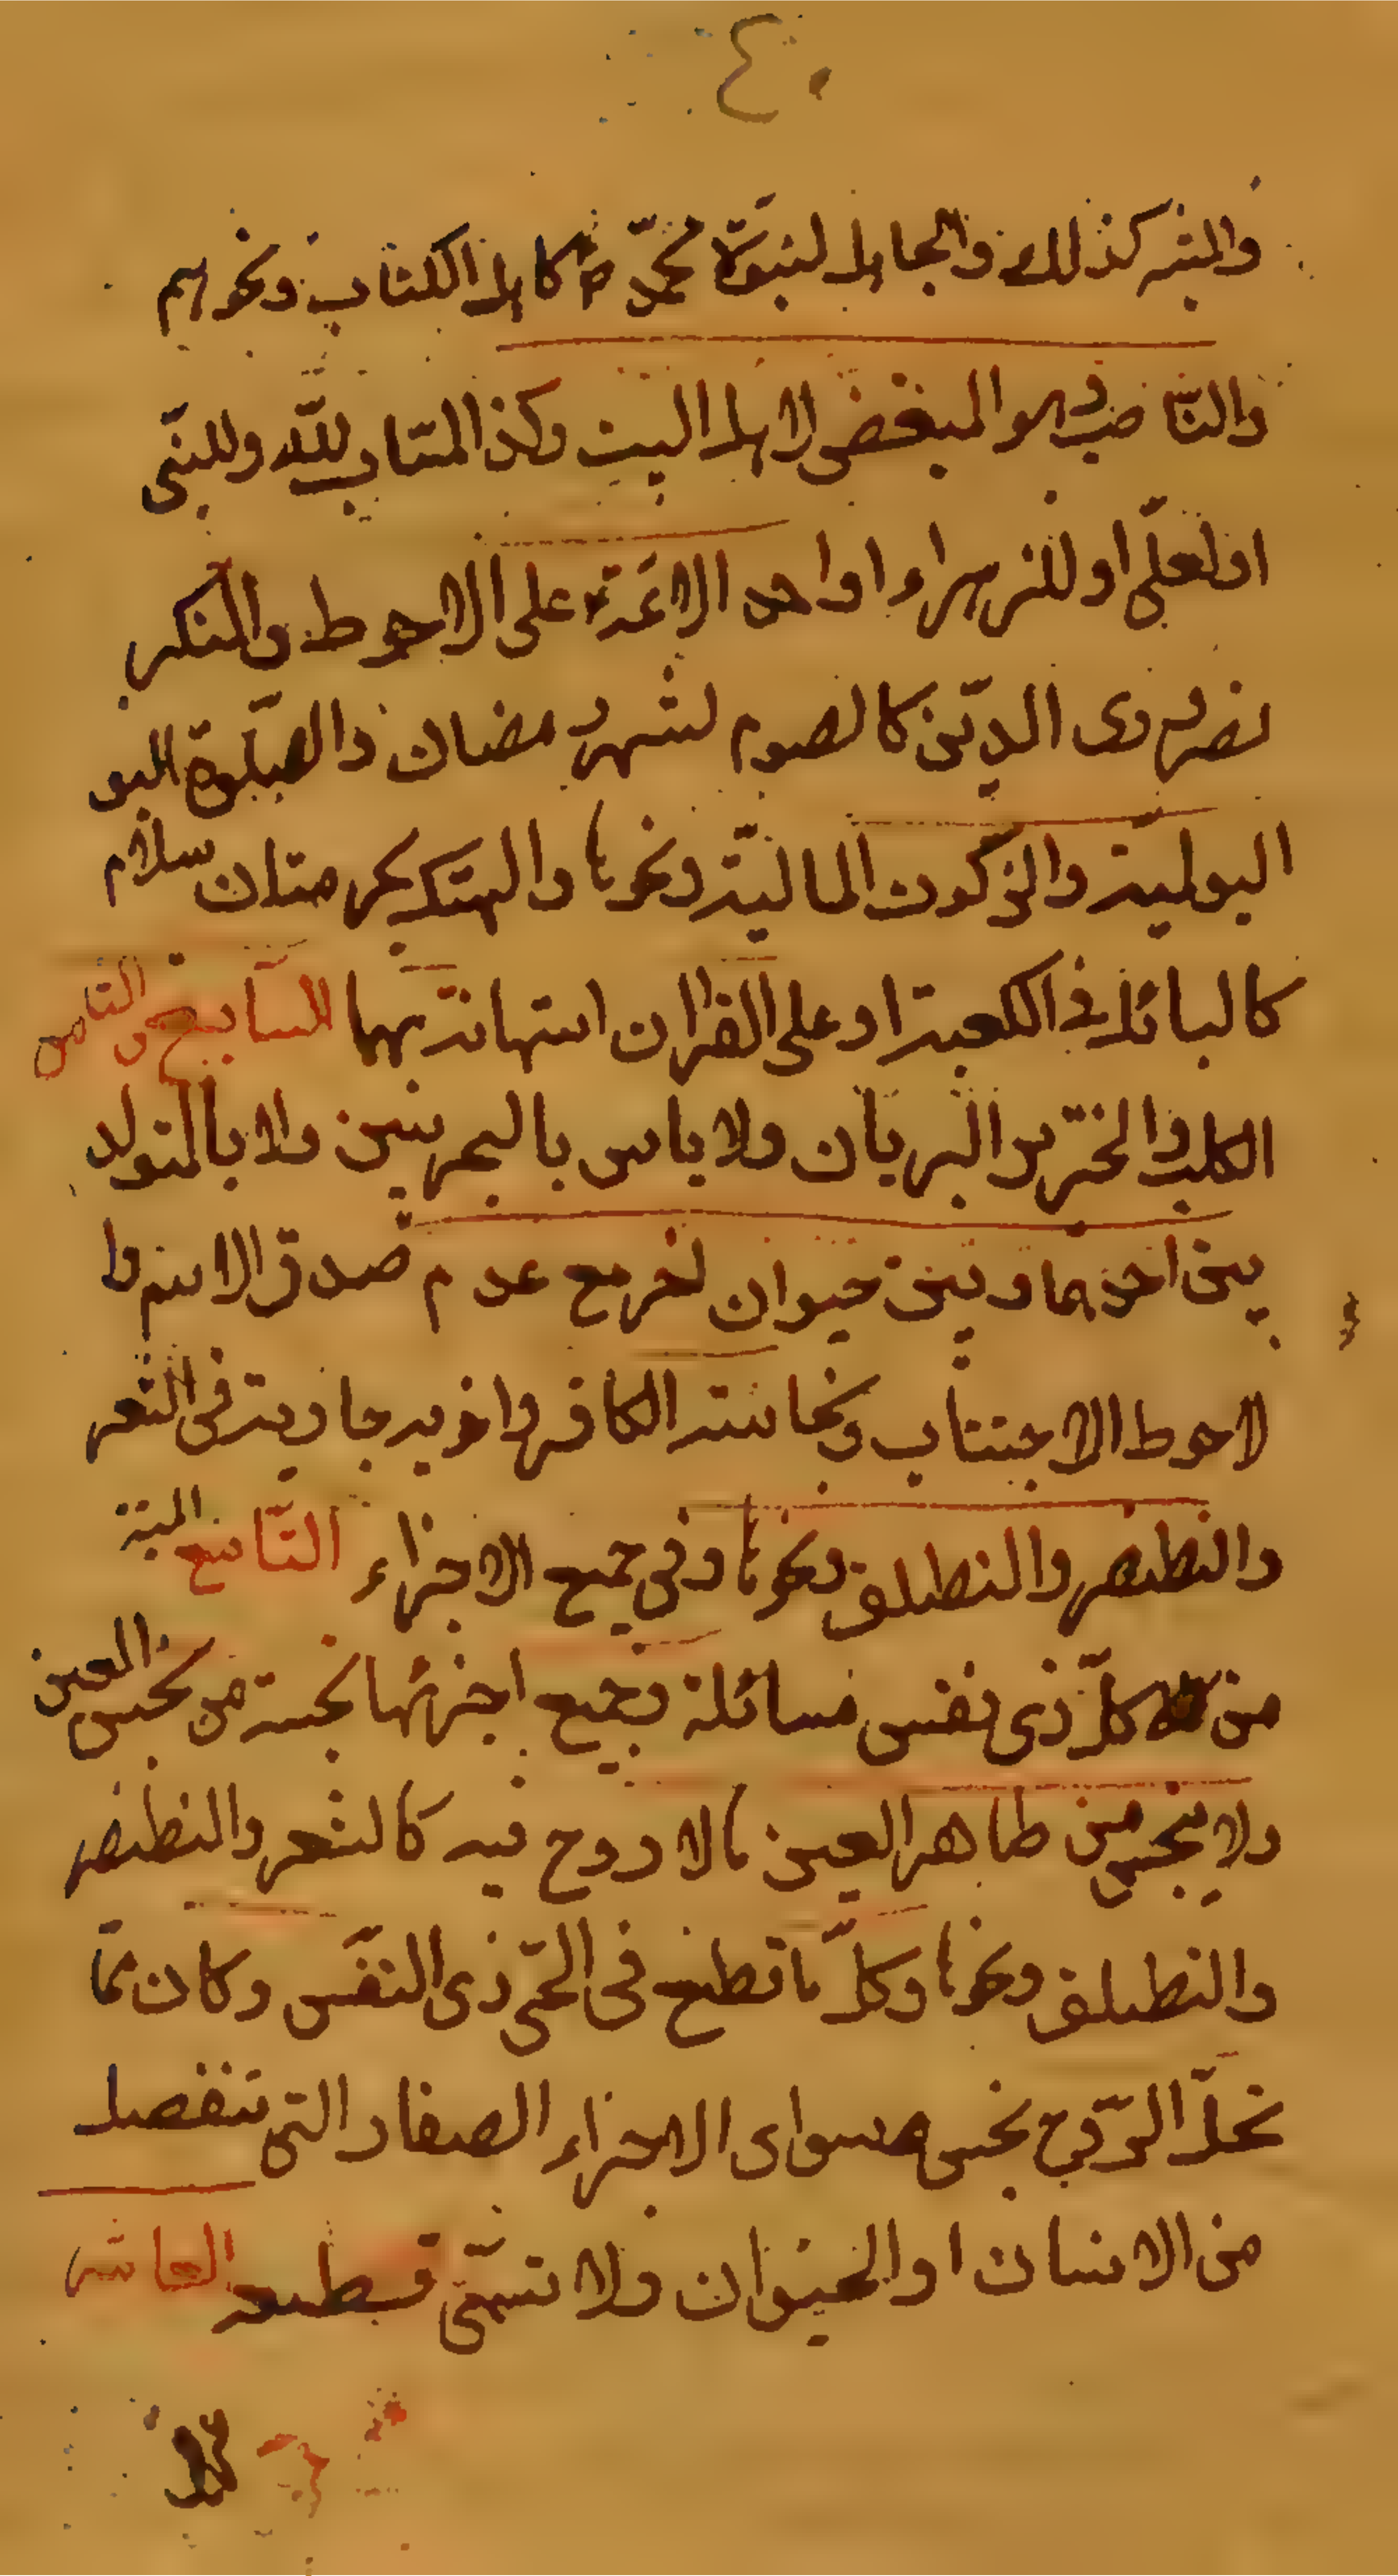 ٤٠
والبتر كذلك والجاهل لنبوّة محمّد ص كاهل الكتاب ونحوهم
والنّاصب وهو المبغض لاهل البيت وكذا السّاب لله وللنبّى
او لعلى او للزهراء او احد الائمّة على الاحوط والمنكر
لضرورى الدّين كالصوم لشهر رمضان والصّلوة اليو
اليوليّة والزكوت الماليّة ونحوها والهتك حرمتان سلام
كالبائل فى الكعبة او على القران استهانة بهما السّابع والثامن
الكلب والخنزير البريان ولا باس بالبحريين ولا بالمتولد
بين احدهما وبين حيوان اخر مع عدم صدق الاسم وا
لاحوط الاجتناب ونجاسة الكافر واخويه جارية فى الشعر
والظفر والظلف ونحوها وفى جميع الاجزاء التّاسع الميتة
من كلّ ذى نفس سائلة بجميع اجزئها نجسة من نجس العين
ولا ينجس من طاهر العين ما لا روح فيه كالشعر والظفر
والظلف ونحوها وكلّ ما قطع فى الحّى ذى النفس وكان ممّا
تحلّ الرّوح نجس سواى الاجزاء الصغار التى تنفصل
من الانسان او الحيوان ولا تسمّى قطعه العاشر